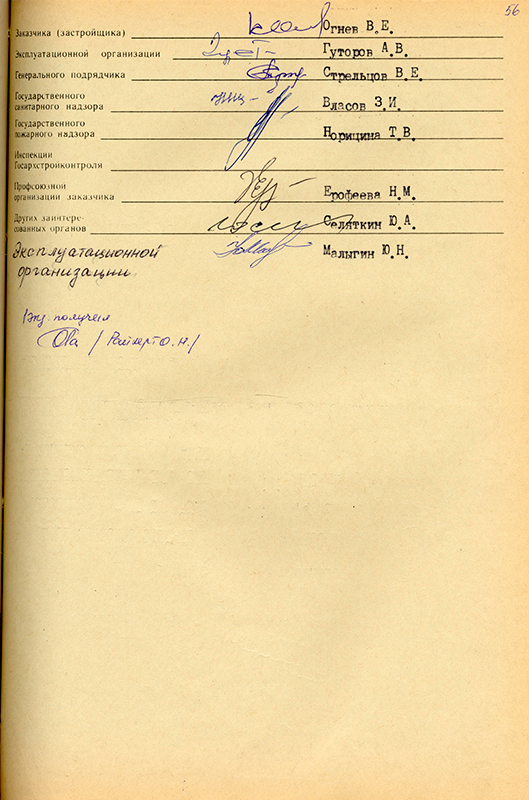 56
Заказчика (застройщика) Огнев В.Е.
Эксплуатационной организации Гуторов А.В.
Генерального подрядчика Стрельцов В.Е.
Государственного
санитарного надзора Власов З.И.
Государственного
пожарного надзора Норицина Т.В.
Инспекции
Госархстройконтроля
Профсоюзной
организации заказчика Ерофеева Н.М.
Других заинтере-
сованных органов Селяткин Ю.А.
Эксплуатационной Малыгин Ю.Н.
организации
1экз. получил